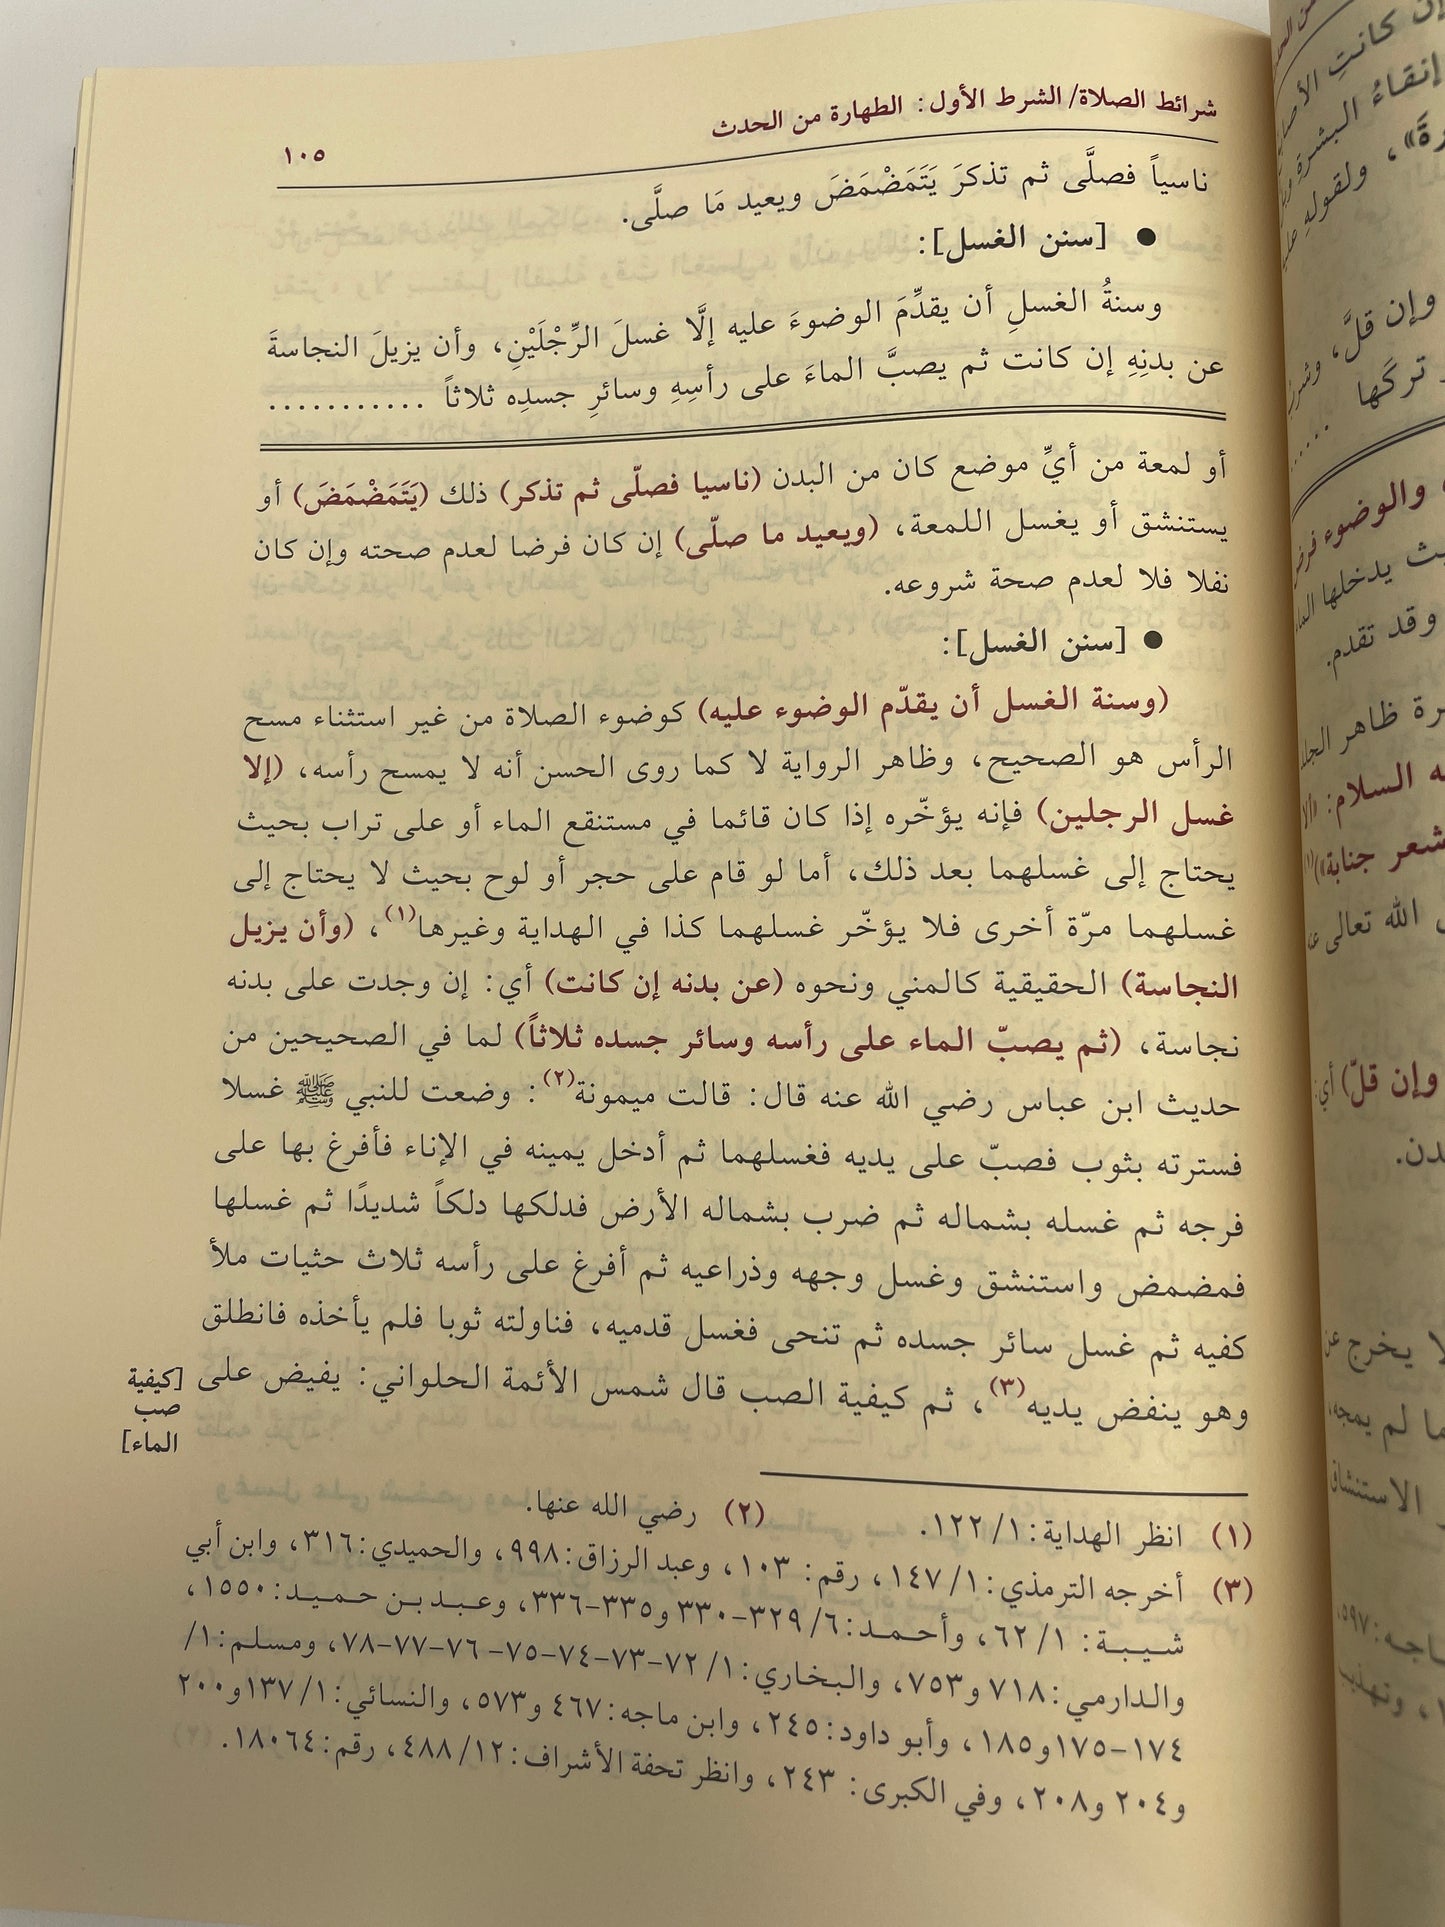 شرائط الصلاة/ الشرط الأول: الطهارة من الحدث
١٠٥
ناسياً فصلَّى ثم تذكرَ يَتَمَضْمَضَ ويعيد مَا صلَّى.
● [سنن الغسل]:
وسنةُ الغسلِ أن يقدِّمَ الوضوءَ عليه إلَّا غسلَ الرِّجْلَيْنِ، وأن يزيلَ النجاسةَ
عن بدنِهِ إن كانت ثم يصبَّ الماءَ على رأسِهِ وسائرِ جسدِه ثلاثاً ...........
أو لمعة من أيِّ موضع كان من البدن (ناسيا فصلّى ثم تذكر) ذلك (يَتَمَضْمَضَ) أو
يستنشق أو يغسل اللمعة، (ويعيد ما صلّى) إن كان فرضا لعدم صحته وإن كان
نفلا فلا لعدم صحة شروعه.
● [سنن الغسل]:
(وسنة الغسل أن يقدّم الوضوء عليه) كوضوء الصلاة من غير استثناء مسح
الرأس هو الصحيح، وظاهر الرواية لا كما روى الحسن أنه لا يمسح رأسه، (إلا
غسل الرجلين) فإنه يؤخّره إذا كان قائما في مستنقع الماء أو على تراب بحيث
يحتاج إلى غسلهما بعد ذلك، أما لو قام على حجر أو لوح بحيث لا يحتاج إلى
غسلهما مرّة أخرى فلا يؤخّر غسلهما كذا في الهداية وغيرها(١)، (وأن يزيل
النجاسة) الحقيقية كالمني ونحوه (عن بدنه إن كانت) أي: إن وجدت على بدنه
نجاسة، (ثم يصبّ الماء على رأسه وسائر جسده ثلاثاً) لما في الصحيحين من
حديث ابن عباس رضي الله عنه قال: قالت ميمونة(٢): وضعت للنبي ﷺ غسلا
فسترته بثوب فصبّ على يديه فغسلهما ثم أدخل يمينه في الإناء فأفرغ بها على
فرجه ثم غسله بشماله ثم ضرب بشماله الأرض فدلكها دلكاً شديدًا ثم غسلها
فمضمض واستنشق وغسل وجهه وذراعيه ثم أفرغ على رأسه ثلاث حثيات ملأ
كفيه ثم غسل سائر جسده ثم تنحى فغسل قدميه، فناولته ثوبا فلم يأخذه فانطلق
وهو ينفض يديه(٣)، ثم كيفية الصب قال شمس الأئمة الحلواني: يفيض على
[كيفية
صب
الماء]
(١) انظر الهداية: ١/ ١٢٢. (٢) رضي الله عنها.
(٣) أخرجه الترمذي: ١/ ١٤٧، رقم: ١٠٣، وعبد الرزاق: ٩٩٨، والحميدي: ٣١٦، وابن أبي
شيبة: ١/ ٦٢، وأحمد: ٦/ ٣٢٩-٣٣٠ و٣٣٥-٣٣٦، وعبد بن حميد: ١٥٥٠،
والدارمي: ٧١٨ و٧٥٣، والبخاري: ١/ ٧٢-٧٣-٧٤-٧٥-٧٦-٧٧-٧٨، ومسلم: ١/
١٧٤-١٧٥و١٨٥، وأبو داود: ٢٤٥، وابن ماجه: ٤٦٧ و٥٧٣، والنسائي: ١/ ١٣٧و٢٠٠
و٢٠٤ و٢٠٨، وفي الكبرى: ٢٤٣، وانظر تحفة الأشراف: ١٢/ ٤٨٨، رقم: ١٨٠٦٤.